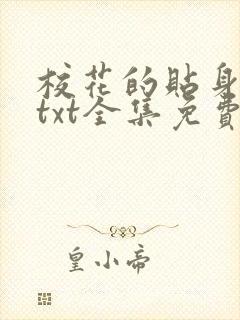 校花的貼身
txt全集免費
皇小帝